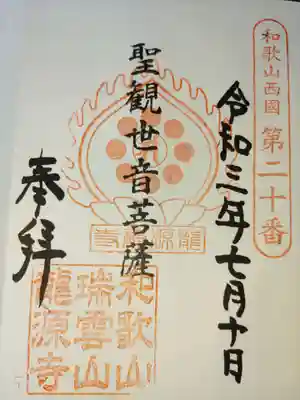 和歌山西國 第二十番
令和三年七月十日
聖観世音菩薩
龍源寺
奉拝
和歌山
瑞雲山
龍源寺